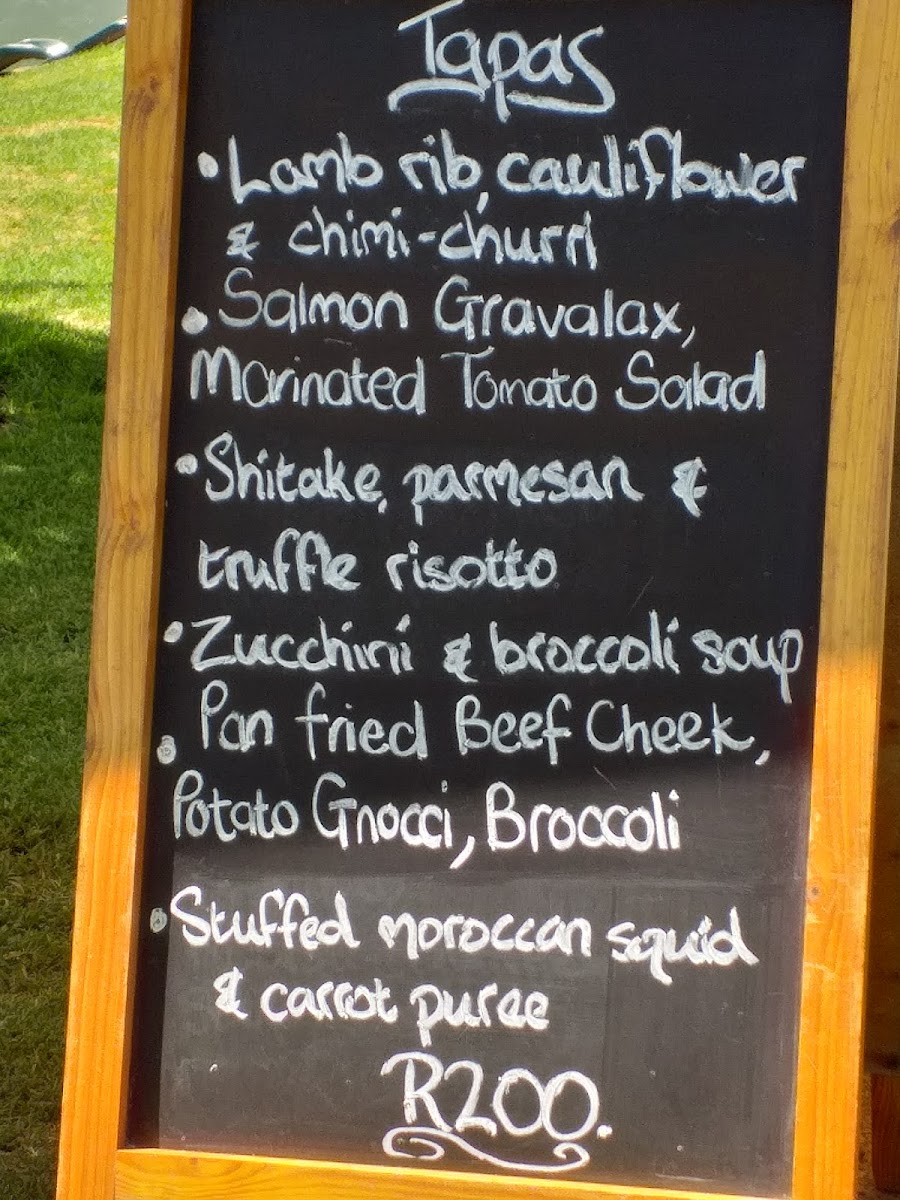 Tapas
• Lamb rib, cauliflower
& chimi-churri
• Salmon Gravalax,
Marinated Tomato Salad
• Shitake, parmesan &
truffle risotto
• Zucchini & broccoli soup
• Pan fried Beef Cheek,
Potato Gnocci, Broccoli
• Stuffed moroccan squid
& carrot puree
R200.